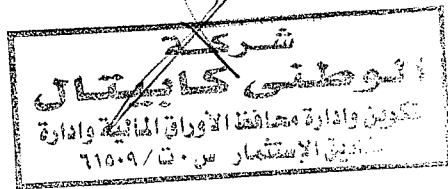 شركة
الوطنى كابيتال
تكوين وإدارة محافظ الأوراق المالية وإدارة
صناديق الإستثمار س.ت/٦١٥٠٩